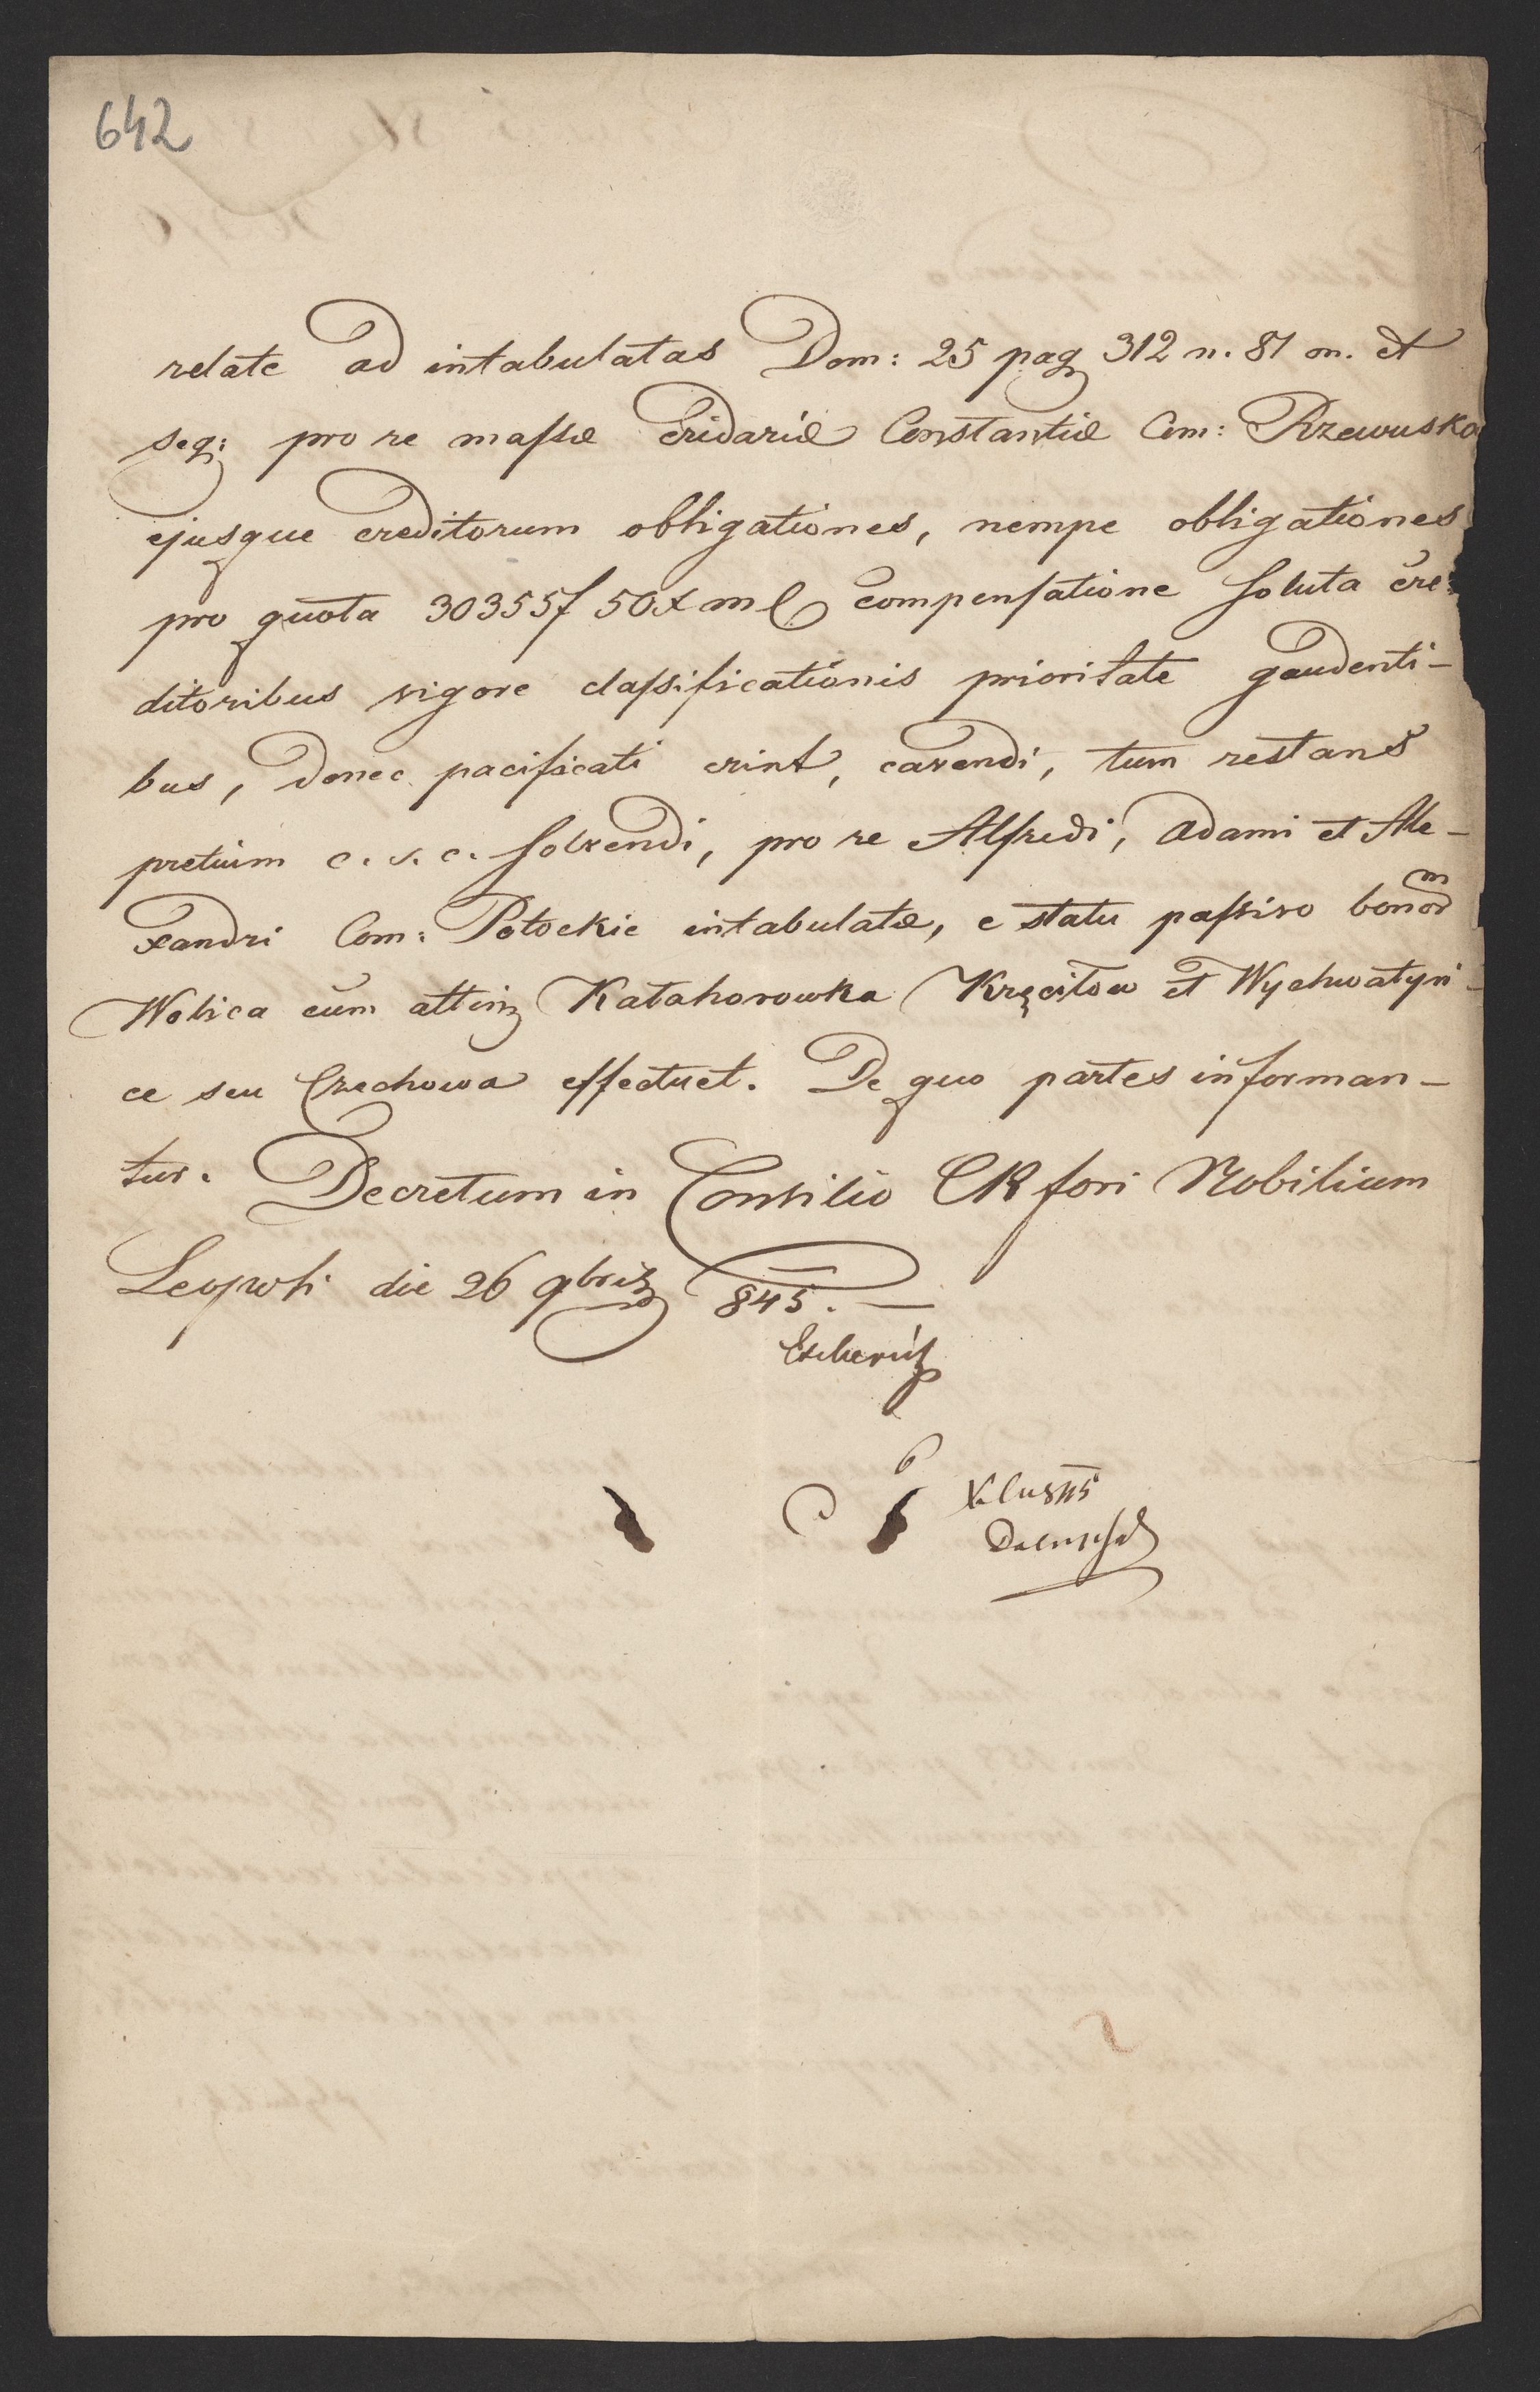 642
relate ad intabulatas Dom: 25 pag 312 n. 81 on. et
seq: pro re massæ Cridariæ Constantiæ Com: Rzewuska
ejusque creditorum obligationes, nempe obligationes
pro quota 30355f 50x m compensatione soluta cre-
ditoribus vigore classificationis prioritate gaudenti-
bus, donec pacificati erint, cavendi, tum restans
pretium c. s. c. solvendi, pro re Alfredi, Adami et Ale-
xandri Com: Potockie intabulatæ, e statu passivo bonorm
Wolica cum attin Kałahorowka Kręcitow et Wychwatyni-
ce seu Czechowa effectuet. De quo partes informan-
tur. Decretum in Consilio CR fori Nobilium
Leopoli die 26 9bris 845. —